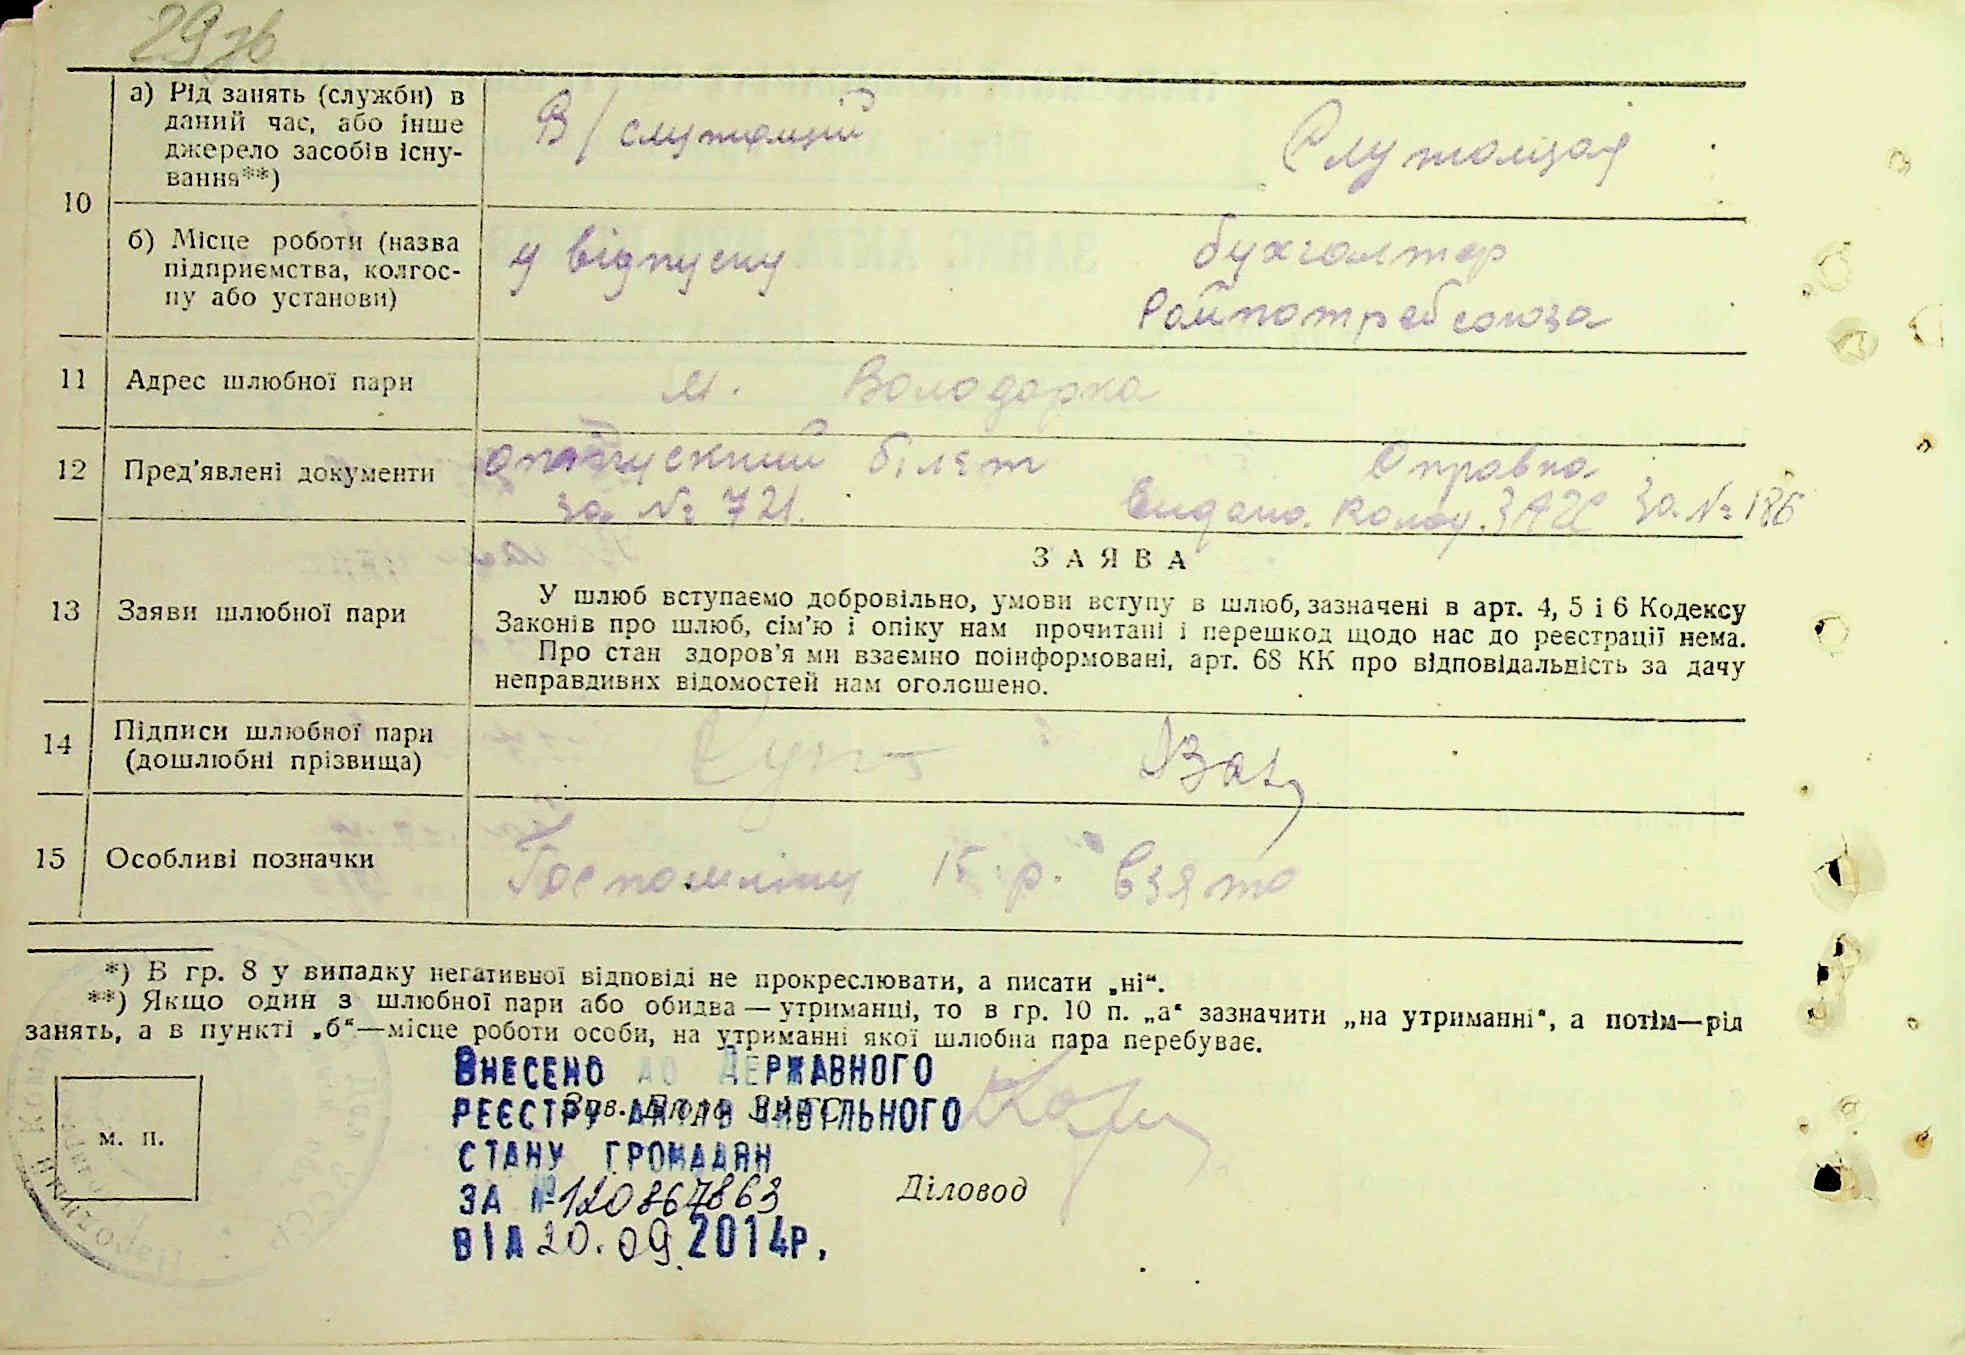 29 зв
10
а) Рід занять (служби) в
даний час, або інше
джерело засобів існу-
вання**)
В/служащій
Служащая
б) Місце роботи (назва
підприємства, колгос-
пу або установи)
у відпуску
бухгалтер
Райпотребсоюза
11 Адрес шлюбної пари
м. Володарка
12 Пред'явлені документи
білет
за № 721.
Справка
за № 186
13 Заяви шлюбної пари
ЗАЯВА
У шлюб вступаємо добровільно, умови вступу в шлюб, зазначені в арт. 4, 5 і 6 Кодексу
Законів про шлюб, сім'ю і опіку нам прочитані і перешкод щодо нас до реєстрації нема.
Про стан здоров'я ми взаємно поінформовані, арт. 68 КК про відповідальність за дачу
неправдивих відомостей нам оголошено.
14 Підписи шлюбної пари
(дошлюбні прізвища)
15 Особливі позначки
Госпошліну 15 р. взято
*) В гр. 8 у випадку негативної відповіді не прокреслювати, а писати „ні“.
**) Якщо один з шлюбної пари або обидва — утриманці, то в гр. 10 п. „а“ зазначити „на утриманні“, а потім—рід
занять, а в пункті „б“—місце роботи особи, на утриманні якої шлюбна пара перебуває.
м. п.
Зав. Бюро ЗАГС
Внесено до Державного
реєстру актів цивільного
стану громадян
за № 120867863
від 20.09.2014р.
Діловод